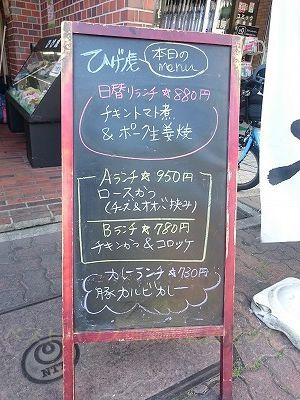 ひげ虎 本日の
menu
日替りランチ☆880円
チキントマト煮
&ポーク生姜焼
Aランチ☆950円
ロースかつ
(チーズ&オオバ挟み)
Bランチ☆780円
チキンかつ&コロッケ
カレーランチ☆730円
豚カルビカレー
NTT